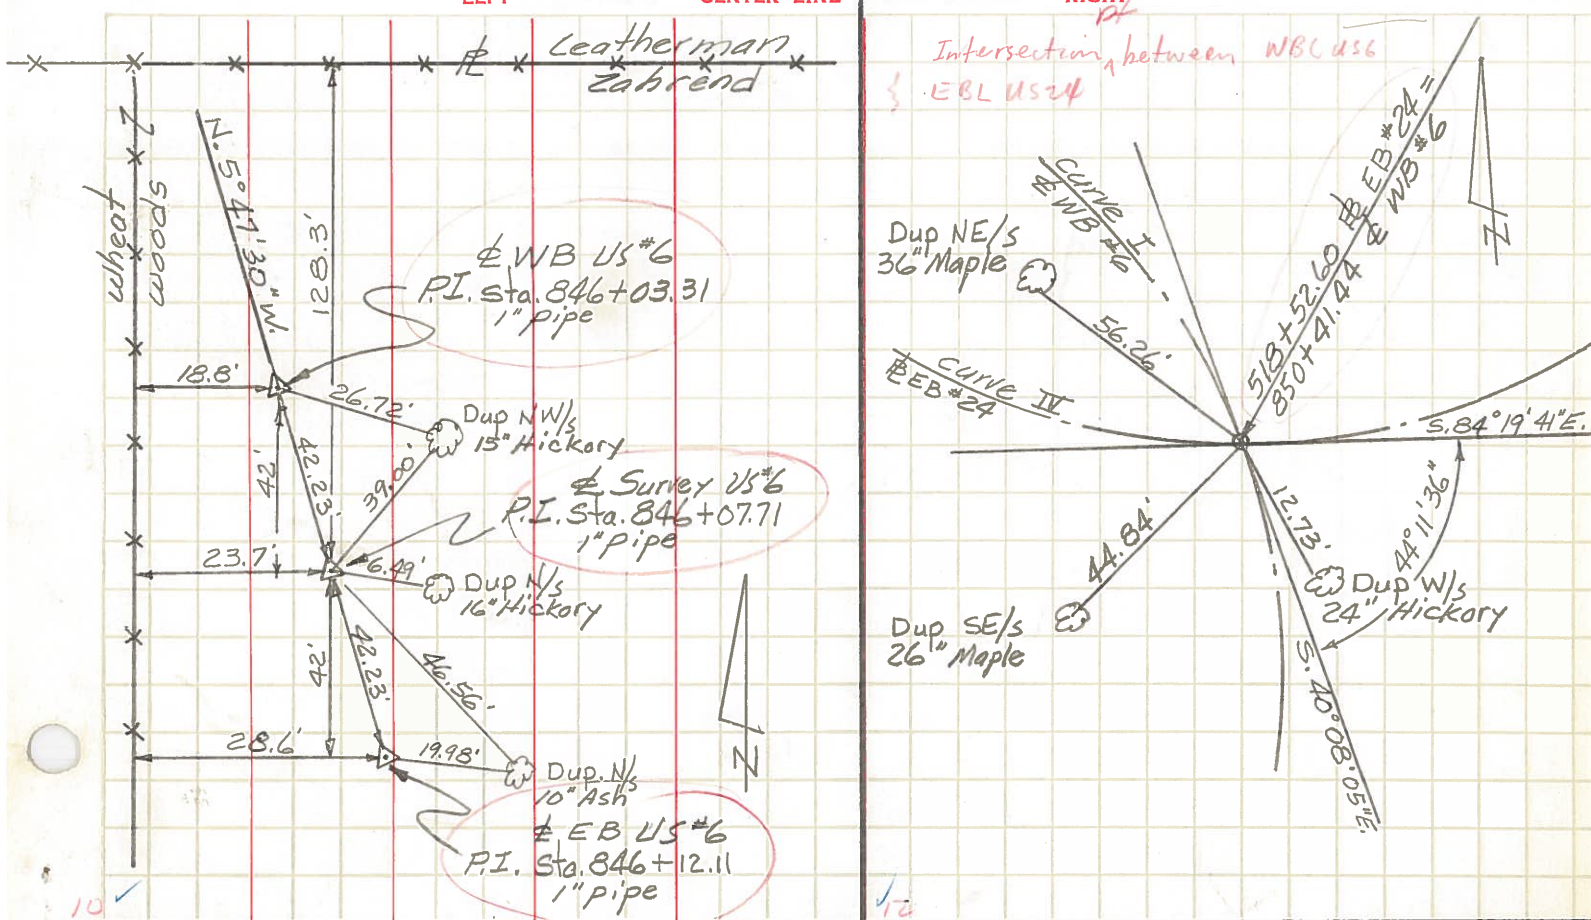 LEFT
CENTER LINE
RIGHT
℄ Leatherman
Zahrend
wheat
woods
N. 5° 47' 30" W.
128.3'
℄ WB US #6
P.I. Sta. 846+03.31
1" pipe
18.8'
26.72'
Dup NW/s
15" Hickory
42'
42.23'
39.00'
℄ Survey US #6
P.I. Sta. 846+07.71
1" pipe
23.7'
6.49'
Dup N/s
16" Hickory
42'
42.23'
46.56'
28.6'
19.98'
Dup. N/s
10" Ash
℄ EB US #6
P.I. Sta. 846+12.11
1" pipe
N
10
pt
Intersection ^ between WBL US6
& EBL US24
Curve I
℄ WB #6
Dup NE/s
36" Maple
56.26'
Curve IV
℄ EB #24
518+52.60 ℄ EB #24 =
850+41.44 ℄ WB #6
N
S. 84° 19' 41" E.
44.84'
12.73'
44° 11' 36"
Dup W/s
24" Hickory
Dup SE/s
26" Maple
S. 40° 08' 05" E.
12